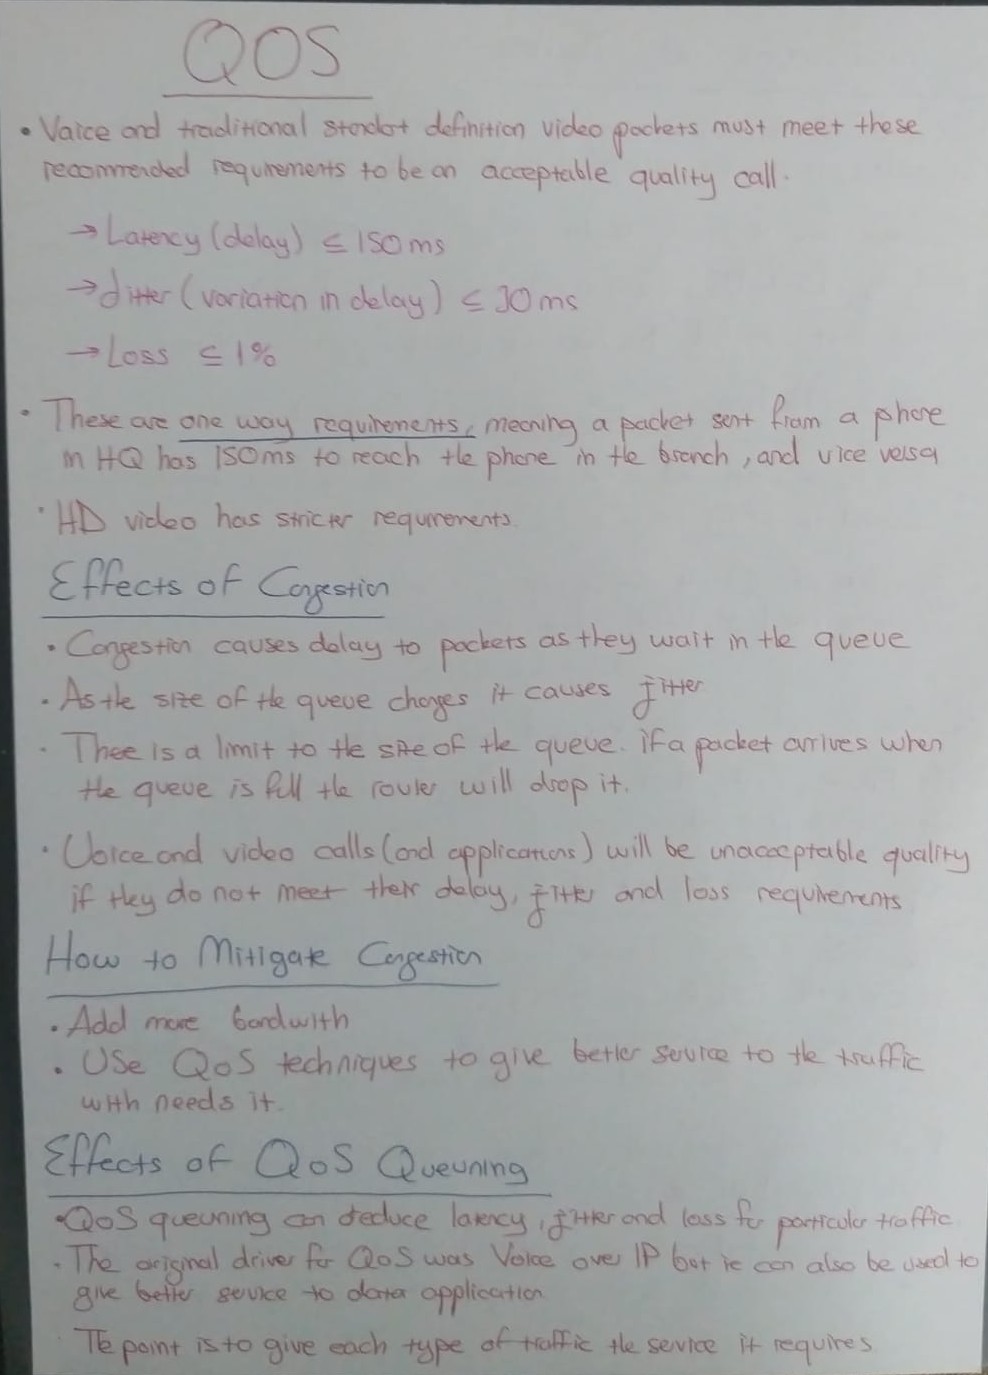 QOS
• Vaice and traditional standart definition video packets must meet these
recommended requirements to be an acceptable quality call.
→ Latency (delay) ≤ 150 ms
→ Jitter (variation in delay) ≤ 30 ms
→ Loss ≤ 1%
• These are one way requirements, meaning a packet sent from a phone
in HQ has 150ms to reach the phone in the branch, and vice versa
• HD video has stricter requirements.
Effects of Congestion
• Congestion causes delay to packets as they wait in the queue
• As the size of the queue changes it causes jitter
• There is a limit to the size of the queue. if a packet arrives when
the queue is full the router will drop it.
• Voice and video calls (and applications) will be unacceptable quality
if they do not meet their delay, jitter and loss requirements
How to Mitigate Congestion
• Add more bandwith
• Use QoS techniques to give better service to the traffic
with needs it.
Effects of QoS Queuning
• QoS queuning can deduce latency, jitter and loss for particular traffic
• The original driver for QoS was Voice over IP but ie can also be used to
give better service to data application
The point is to give each type of traffic the service it requires